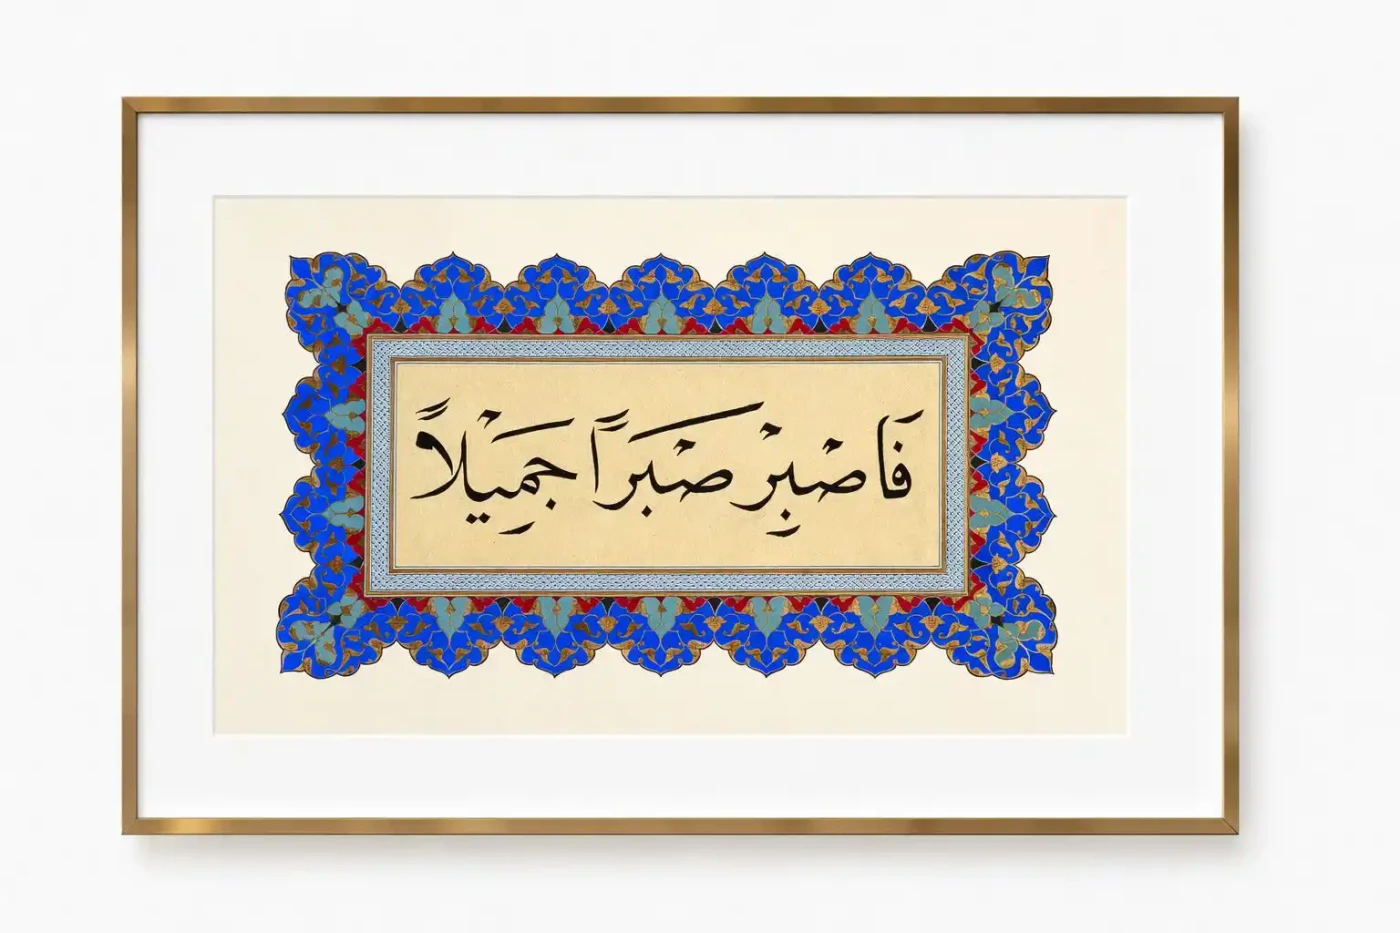 فَاصْبِرْ صَبْرًا جَمِيْلًا